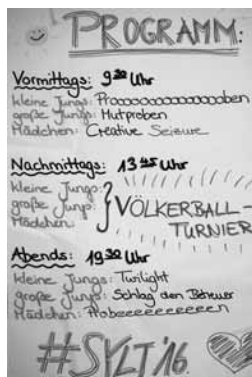 PROGRAMM:
Vormittags: 9³⁰ Uhr
kleine Jungs: Proooooooooooooben
große Jungs: Mutproben
Mädchen: Creative Seizure
Nachmittags: 13⁴⁵ Uhr
kleine Jungs:
große Jungs:
Mädchen:
VÖLKERBALL-
TURNIER
Abends: 19³⁰ Uhr
kleine Jungs: Twilight
große Jungs: Schlag den Betreuer
Mädchen: Probeeeeeeeeeen
#SYLT'16